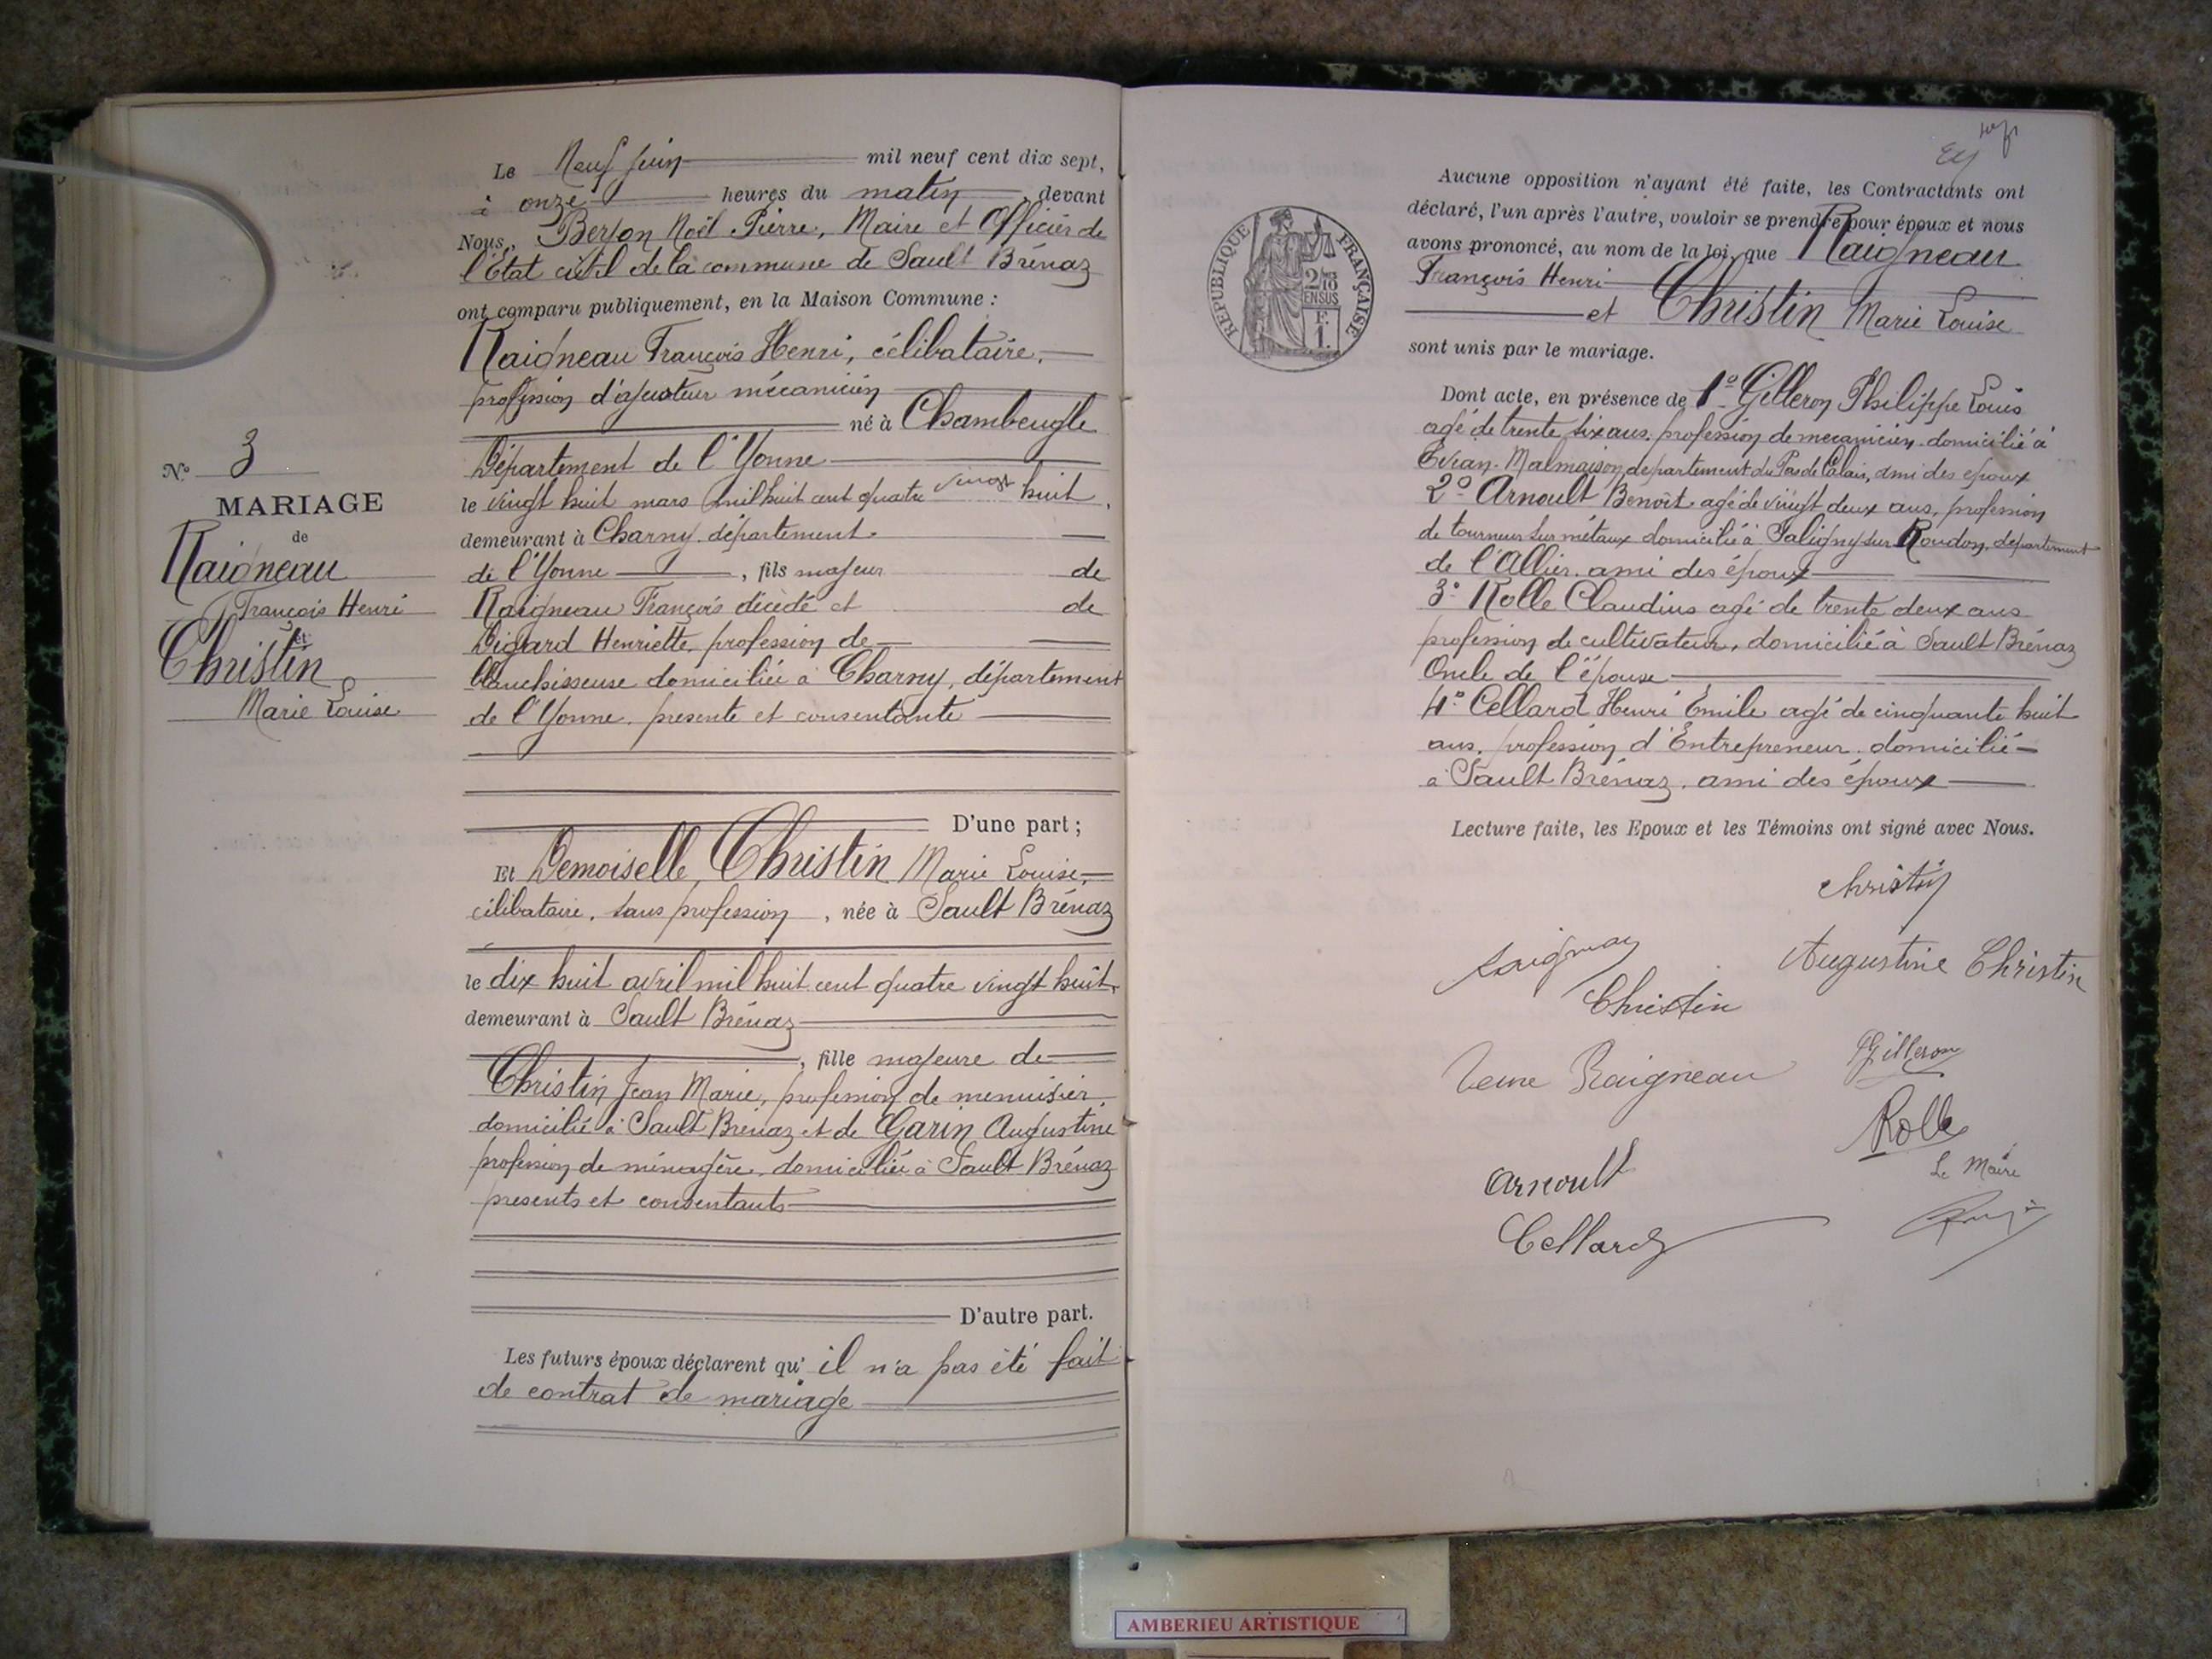 Le Neuf juin mil neuf cent dix sept,
à onze heures du matin, devant
Nous, Berson Noël Pierre, Maire et Officier de
l'État civil de la commune de Sault Brénaz
ont comparu publiquement, en la Maison Commune :
Raigneau François Henri, célibataire,
profession d'ajusteur mécanicien
né à Chambeugle
Département de l'Yonne
le vingt huit mars mil huit cent quatre vingt huit,
demeurant à Charny département
de l'Yonne, fils majeur de
Raigneau François décédé et de
Digard Henriette, profession de
blanchisseuse domiciliée à Charny, département
de l'Yonne, présente et consentante
D'une part ;
Et Demoiselle Christin Marie Louise,
célibataire, sans profession, née à Sault Brénaz
le dix huit avril mil huit cent quatre vingt huit,
demeurant à Sault Brénaz
, fille majeure de
Christin Jean Marie, profession de menuisier,
domicilié à Sault Brénaz et de Garin Augustine
profession de ménagère, domiciliée à Sault Brénaz
présents et consentants
D'autre part.
Les futurs époux déclarent qu'il n'a pas été fait
de contrat de mariage
N° 3
MARIAGE
de
Raigneau
François Henri
et
Christin
Marie Louise
Aucune opposition n'ayant été faite, les Contractants ont
déclaré, l'un après l'autre, vouloir se prendre pour époux et nous
avons prononcé, au nom de la loi, que Raigneau
François Henri
et Christin Marie Louise
sont unis par le mariage.
Dont acte, en présence de 1° Gilleron Philippe Louis
agé de trente six ans, profession de mecanicien domicilié à
Malmaison département du Pas de Calais, ami des epoux
2° Arnoult Benoit agé de vingt deux ans, profession
de tourneur sur métaux domicilié à Saligny sur Roudon, département
de l'Allier, ami des époux
3° Rolle Claudius agé de trente deux ans
profession de cultivateur, domicilié à Sault Brénaz
Oncle de l'épouse
4° Cellard Henri Emile agé de cinquante huit
ans, profession d'Entrepreneur, domicilié
à Sault Brénaz, ami des époux
Lecture faite, les Epoux et les Témoins ont signé avec Nous.
Christin
Augustine Christin
Christin
Gilleron
Veuve Raigneau
Rolle
Le Maire
Arnoult
Cellard
RÉPUBLIQUE FRANÇAISE
2/10
EN SUS
F.
1.
AMBERIEU ARTISTIQUE